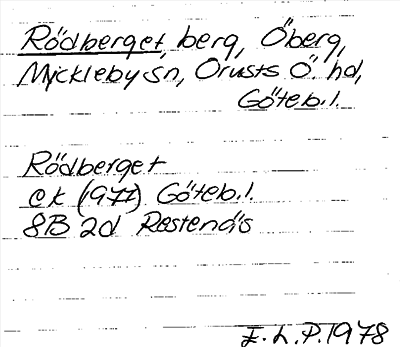 Rödberget, berg, Öberg,
Myckleby sn, Orusts Ö. hd,
Göteb.l.
Rödberget
ek (1977) Göteb.l.
8B 2d Restenäs
E.L.P. 1978